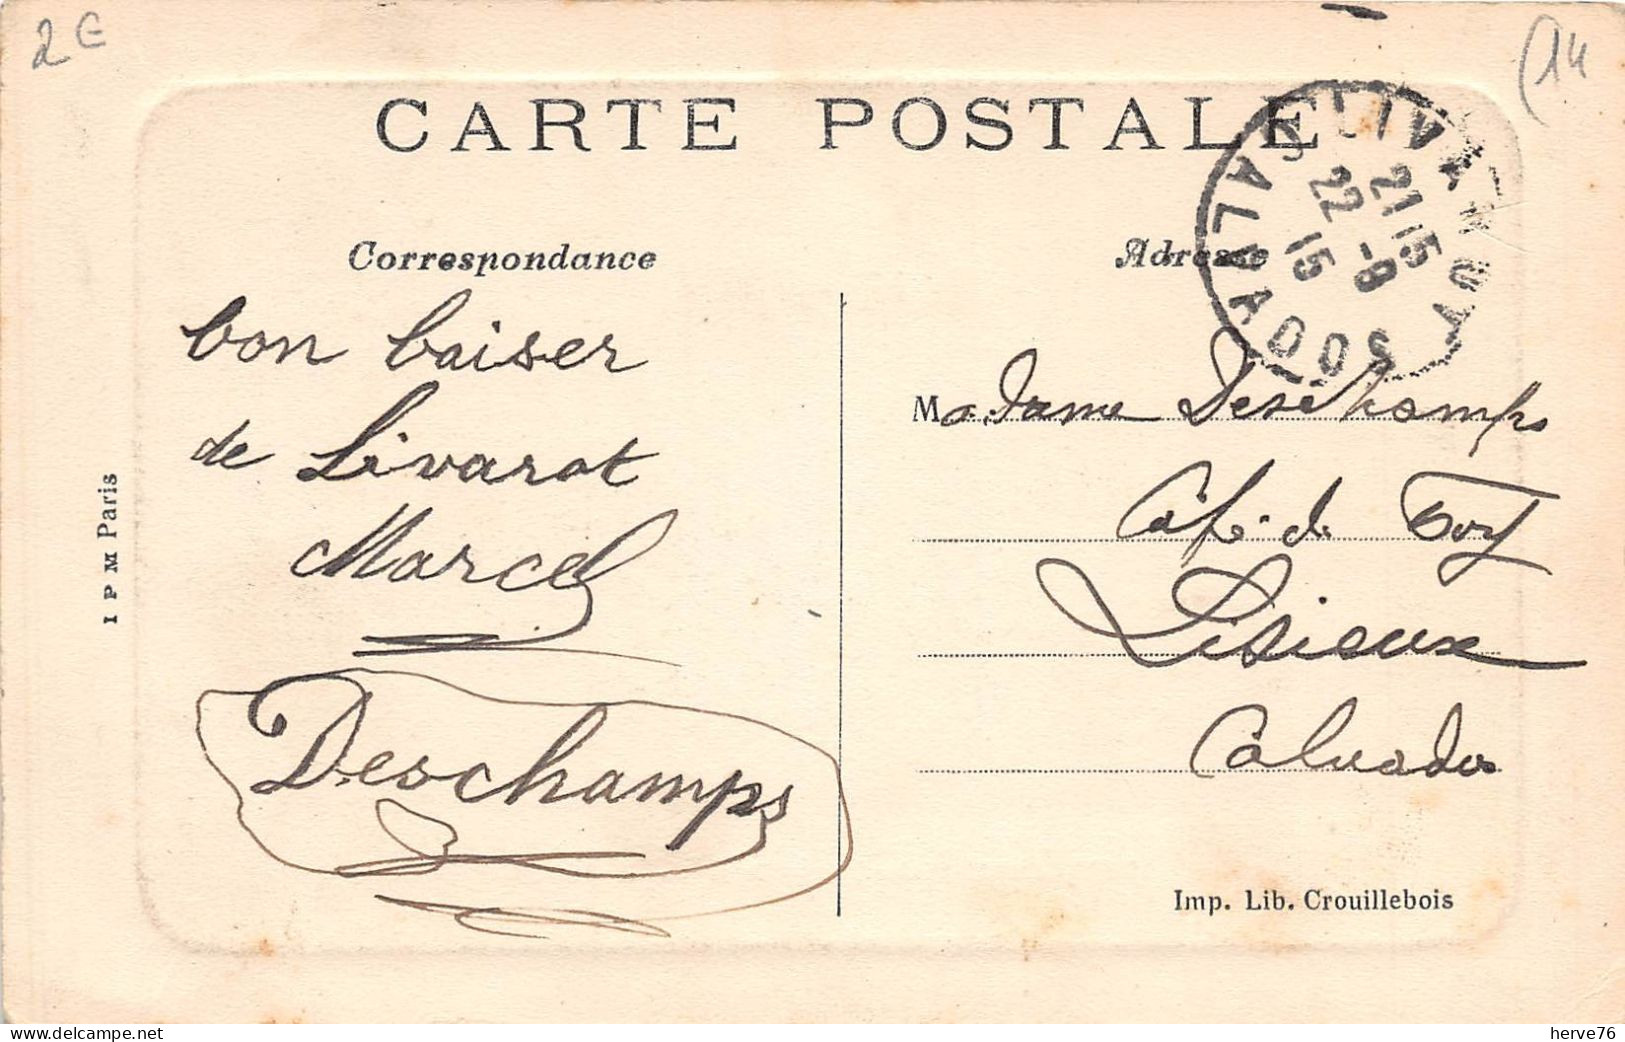 2€
(14
CARTE POSTALE
LIVAROT
21 15
22 -8
15
CALVADOS
Correspondance
Adresse
bon baiser
de Livarot
Marcel
Deschamps
Madame Deschamps
Café de Foy
Lisieux
Calvados
I P M Paris
Imp. Lib. Crouillebois
delcampe.net
herve76